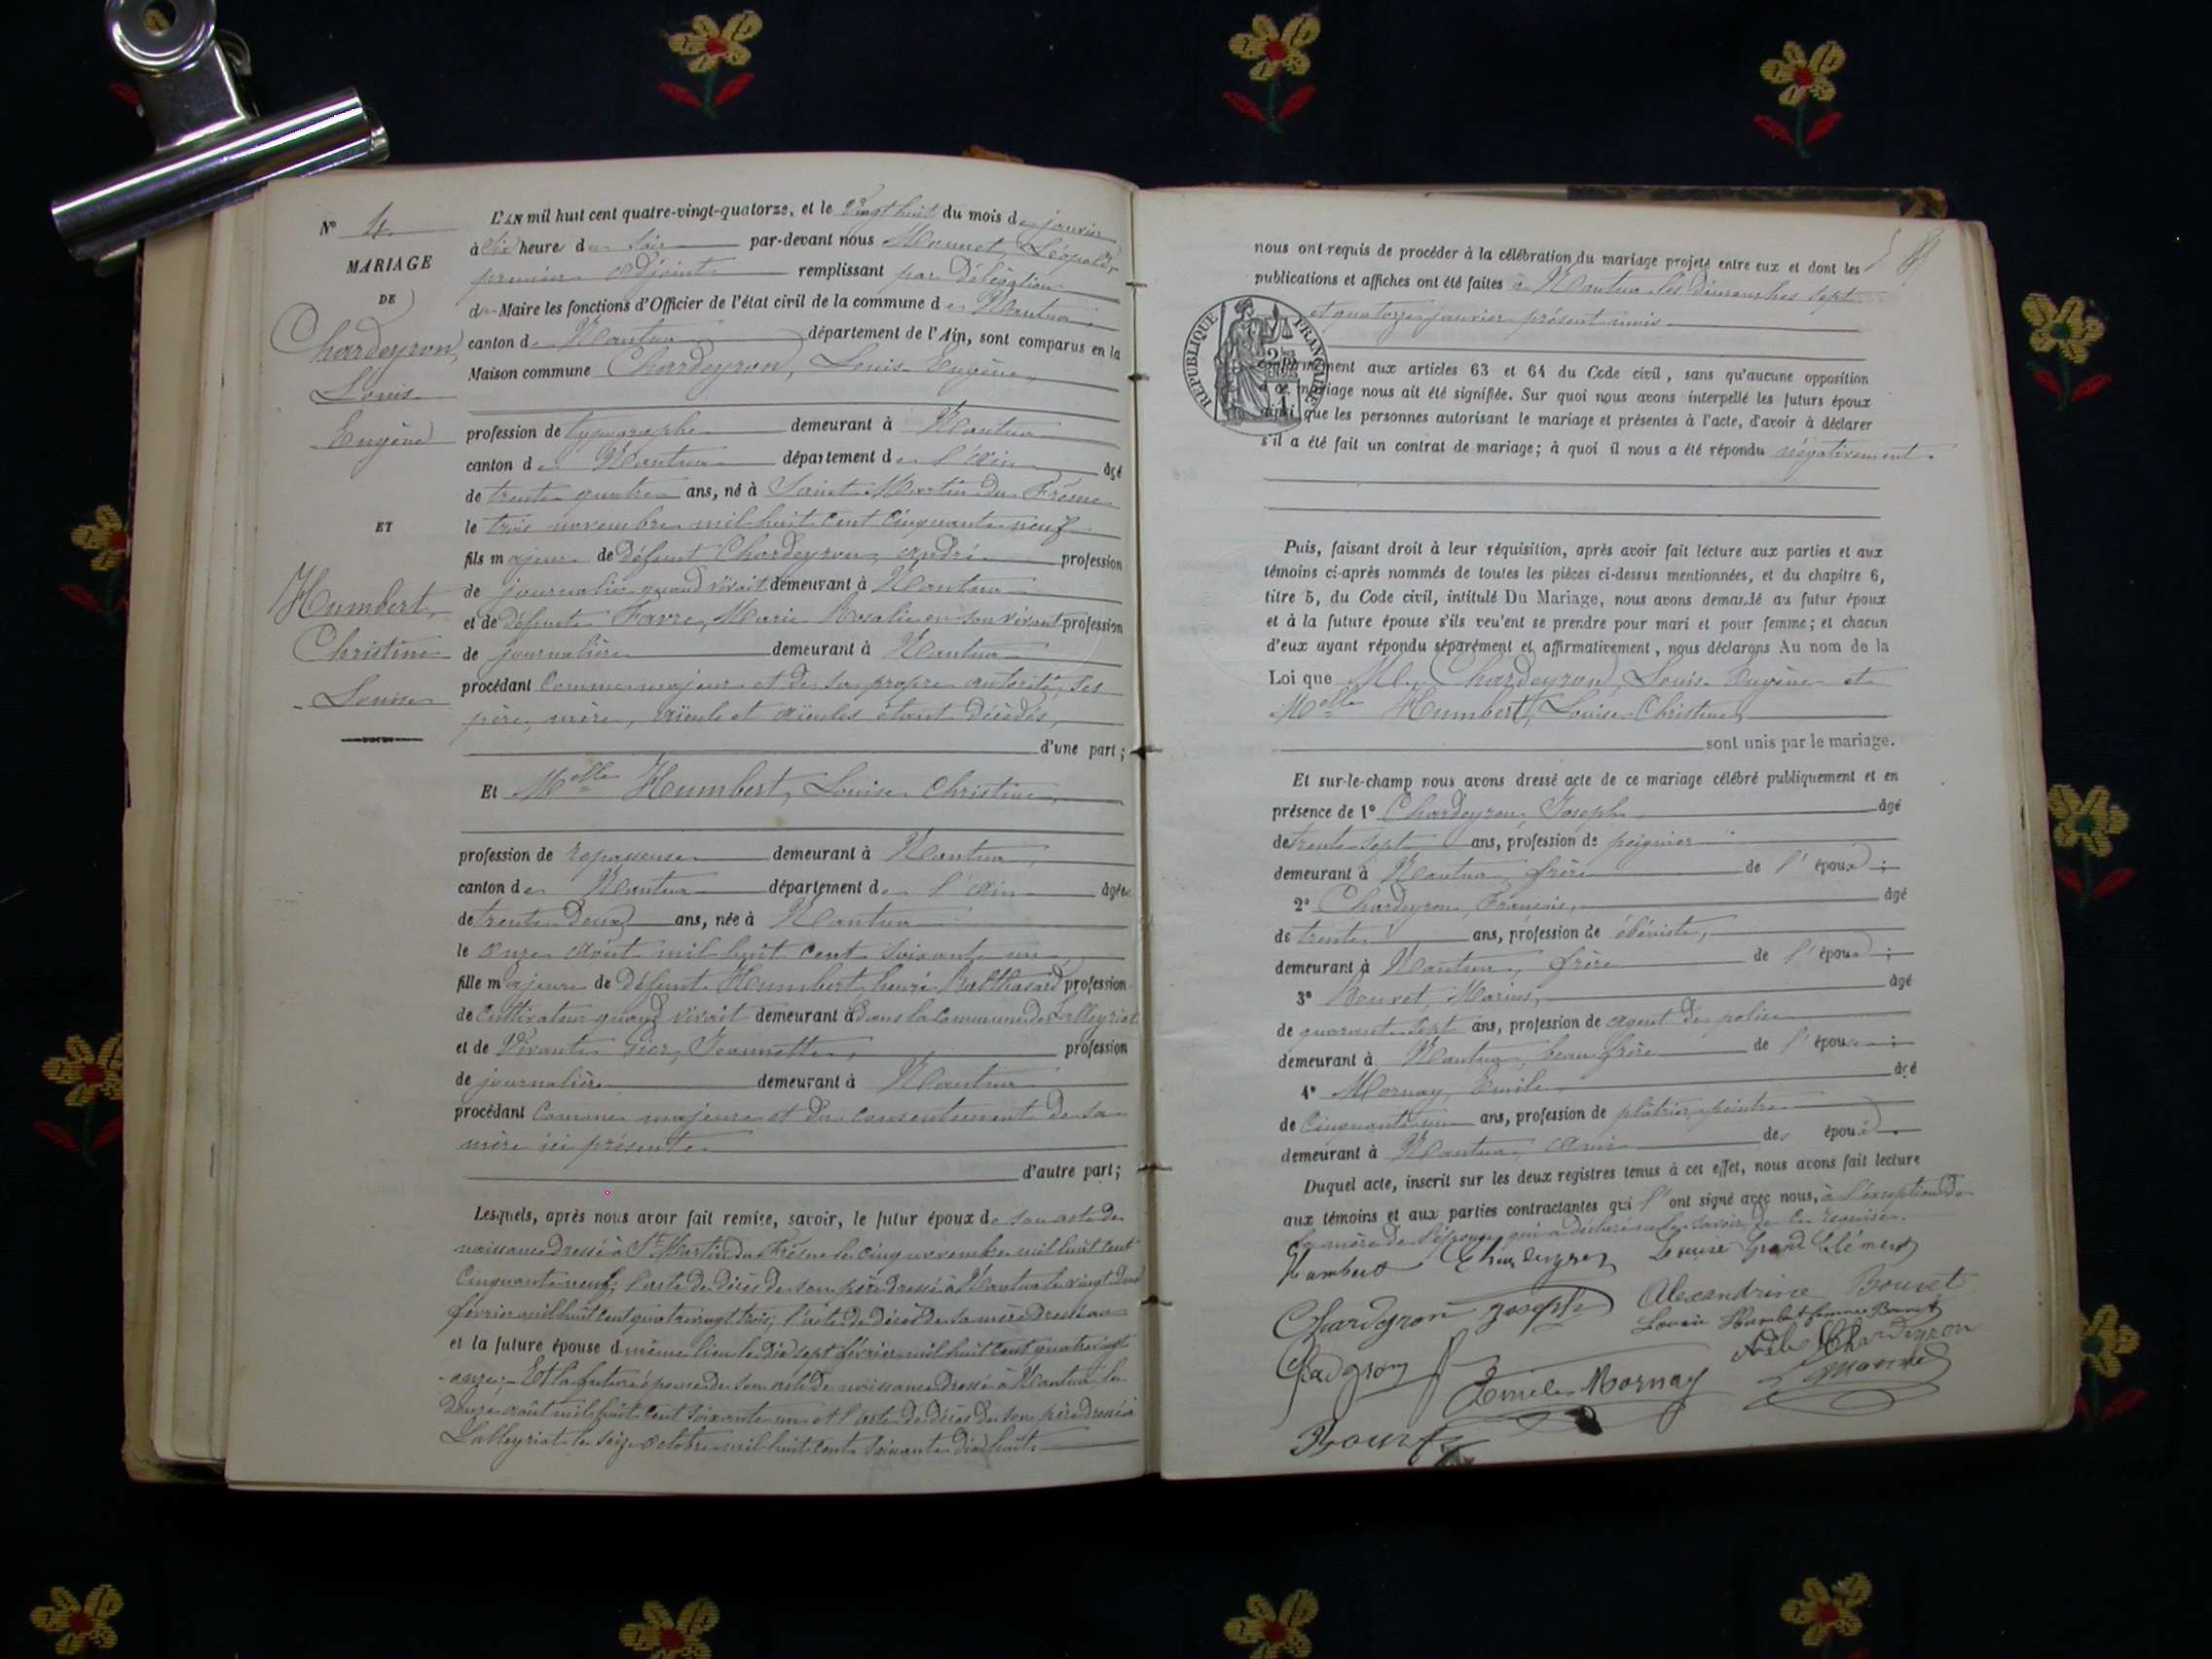 N° 4
MARIAGE
DE
Chardeyron,
Louis
Eugène
ET
Humbert,
Christine
Louise
L'AN mil huit cent quatre-vingt-quatorze, et le vingt huit du mois de janvier
à six heure du soir par-devant nous Léopold,
premier adjoint remplissant par délégation
du Maire les fonctions d'Officier de l'état civil de la commune de Nantua
canton de Nantua département de l'Ain, sont comparus en la
Maison commune Chardeyron, Louis Eugène,
profession de typographe demeurant à Nantua
canton de Nantua département de l'Ain âgé
de trente quatre ans, né à Saint Martin du Frêsne
le trois novembre mil huit cent cinquante neuf
fils majeur de défunt Chardeyron, André profession
de journalier quand vivait demeurant à Nantua
et de défunte Favre, Marie Rosalie en son vivant profession
de journalière demeurant à Nantua
procédant comme majeur et de sa propre autorité, ses
père, mère, aïeuls et aïeules étant décédés,
d'une part;
Et Melle Humbert, Louise Christine,
profession de repasseuse demeurant à Nantua,
canton de Nantua département de l'Ain âgée
de trente deux ans, née à Nantua
le onze août mil huit cent soixante un
fille majeure de défunt Humbert henri Balthasard profession
de cultivateur quand vivait demeurant à dans la commune de Lalleyriat
et de vivante Jeannette, profession
de journalière demeurant à Nantua
procédant comme majeure et du consentement de sa
mère ici présente
d'autre part;
Lesquels, après nous avoir fait remise, savoir, le futur époux de son acte de
naissance dressé à St Martin du Frêsne le cinq novembre mil huit cent
cinquante neuf, l'acte de décès de son père dressé à Nantua le vingt deux
février mil huit cent quatre vingt trois; l'acte de décès de sa mère dressé au
et la future épouse d même lieu le dix sept février mil huit cent quatre vingt
onze; Et la future épouse de son acte de naissance dressé à Nantua le
douze août mil huit cent soixante un et l'acte de décès de son père dressé à
Lalleyriat le seize octobre mil huit cent soixante dix huit
nous ont requis de procéder à la célébration du mariage projeté entre eux et dont les
publications et affiches ont été faites à Nantua les dimanches sept
et quatorze janvier présent mois
REPUBLIQUE FRANÇAISE
conformément aux articles 63 et 64 du Code civil, sans qu'aucune opposition
à ce mariage nous ait été signifiée. Sur quoi nous avons interpellé les futurs époux
ainsi que les personnes autorisant le mariage et présentes à l'acte, d'avoir à déclarer
s'il a été fait un contrat de mariage; à quoi il nous a été répondu négativement.
Puis, faisant droit à leur réquisition, après avoir fait lecture aux parties et aux
témoins ci-après nommés de toutes les pièces ci-dessus mentionnées, et du chapitre 6,
titre 5, du Code civil, intitulé Du Mariage, nous avons demandé au futur époux
et à la future épouse s'ils veulent se prendre pour mari et pour femme; et chacun
d'eux ayant répondu séparément et affirmativement, nous déclarons Au nom de la
Loi que M. Chardeyron, Louis Eugène et
Melle Humbert, Louise Christine,
sont unis par le mariage.
Et sur-le-champ nous avons dressé acte de ce mariage célébré publiquement et en
présence de 1° Chardeyron, Joseph, âgé
de trente sept ans, profession de peignier
demeurant à Nantua, frère de l'époux;
2° Chardeyron, François, âgé
de trente ans, profession de ébéniste,
demeurant à Nantua, frère de l'époux;
3° Bouvet, Marius, âgé
de quarante sept ans, profession de agent de police
demeurant à Nantua, beau frère de l'épouse;
4° Mornay, Emile, âgé
de cinquante un ans, profession de plâtrier peintre
demeurant à Nantua, ami des époux.
Duquel acte, inscrit sur les deux registres tenus à cet effet, nous avons fait lecture
aux témoins et aux parties contractantes qui l'ont signé avec nous, à l'exception de
la mère de l'épouse qui a déclaré ne le savoir de ce requise.
Humbert Chardeyron Louise Grand Clément
Chardeyron Joseph Alexandrine Bouvet
Louise Humbert femme Bouvet
Chardeyron
Emile Mornay
Bouvet